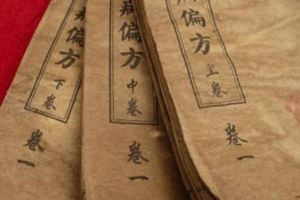 病偏方
下卷
卷一
病偏方
中卷
卷一
偏方
上卷
卷一